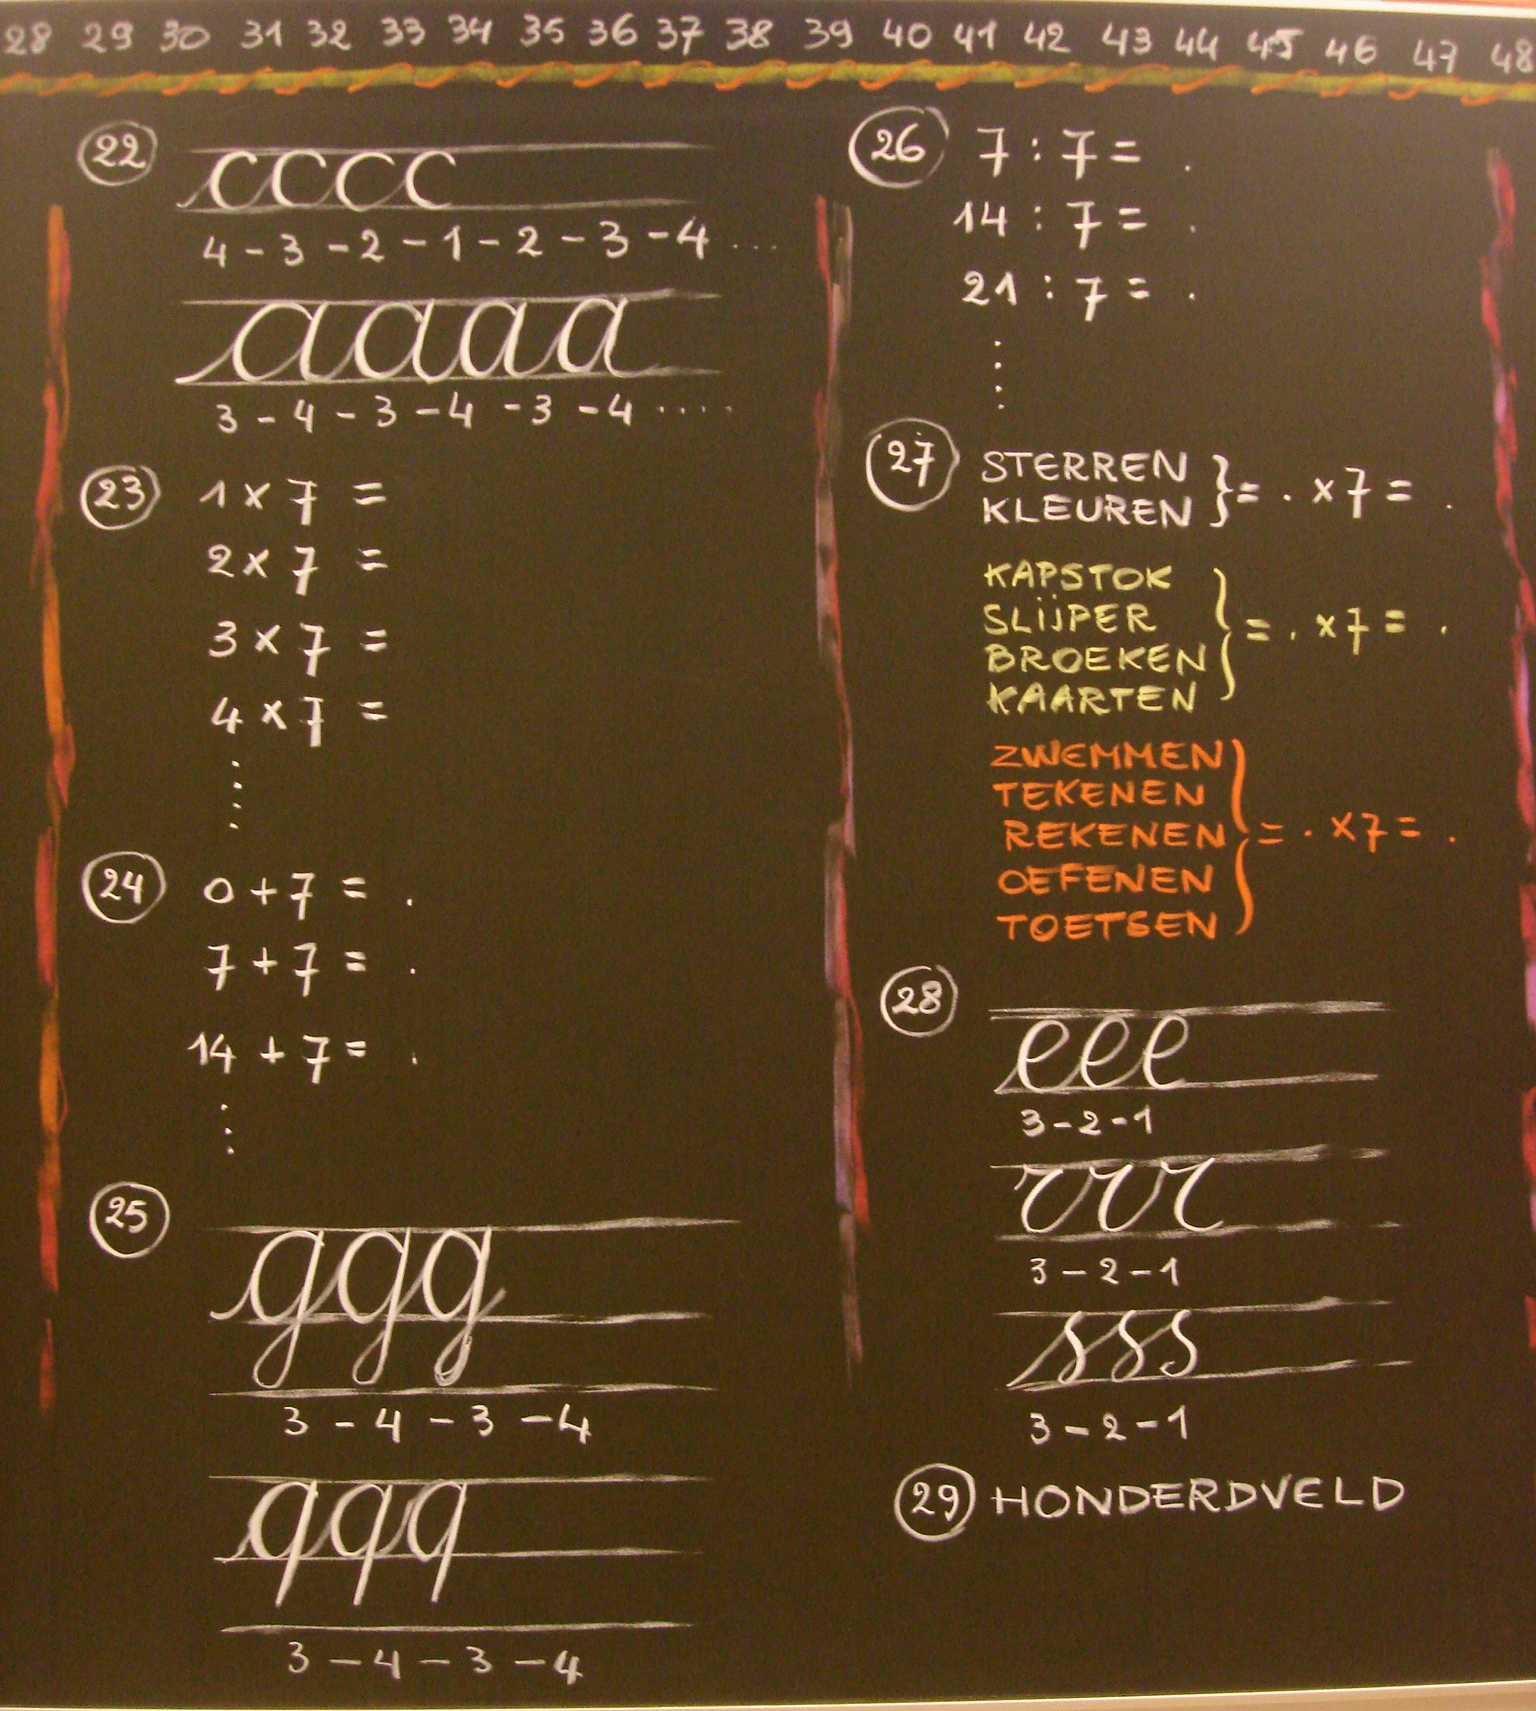 28 29 30 31 32 33 34 35 36 37 38 39 40 41 42 43 44 45 46 47 48
22
cccc
4 - 3 - 2 - 1 - 2 - 3 - 4 ....
aaaa
3 - 4 - 3 - 4 - 3 - 4 ....
23 1 x 7 =
2 x 7 =
3 x 7 =
4 x 7 =
24 0 + 7 = .
7 + 7 = .
14 + 7 = .
25
ggg
3 - 4 - 3 - 4
qqq
3 - 4 - 3 - 4
26 7 : 7 = .
14 : 7 = .
21 : 7 = .
27 STERREN
KLEUREN } = . x 7 = .
KAPSTOK
SLIJPER
BROEKEN
KAARTEN } = . x 7 = .
ZWEMMEN
TEKENEN
REKENEN
OEFENEN
TOETSEN } = . x 7 = .
28
eee
3 - 2 - 1
rrr
3 - 2 - 1
sss
3 - 2 - 1
29 HONDERDVELD